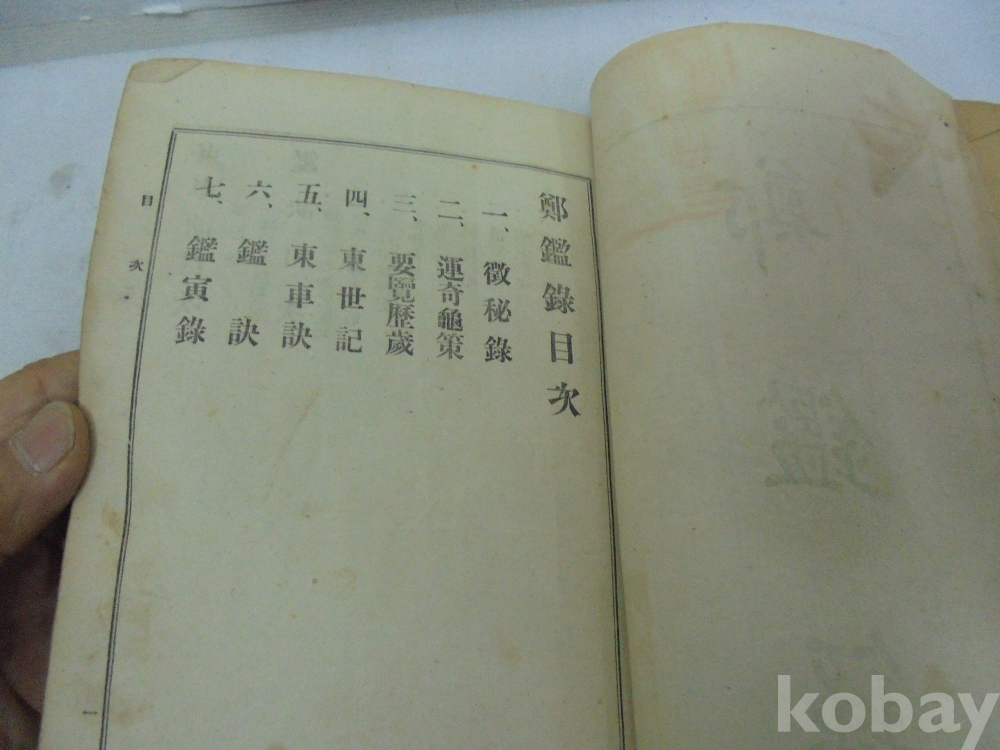 鄭鑑錄目次
一、徵秘錄
二、運奇龜策
三、要覽歷歲
四、東世記
五、東車訣
六、鑑訣
七、鑑寅錄
目次
一
kobay